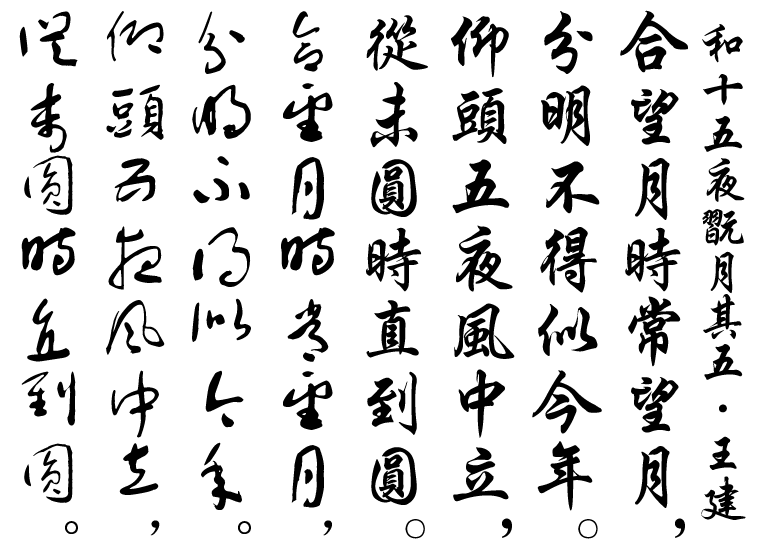 和十五夜翫月其五・王建
合望月時常望月，
分明不得似今年。
仰頭五夜風中立，
從未圓時直到圓。
合望月時常望月，
分明不得似今年。
仰頭五夜風中立，
從未圓時直到圓。